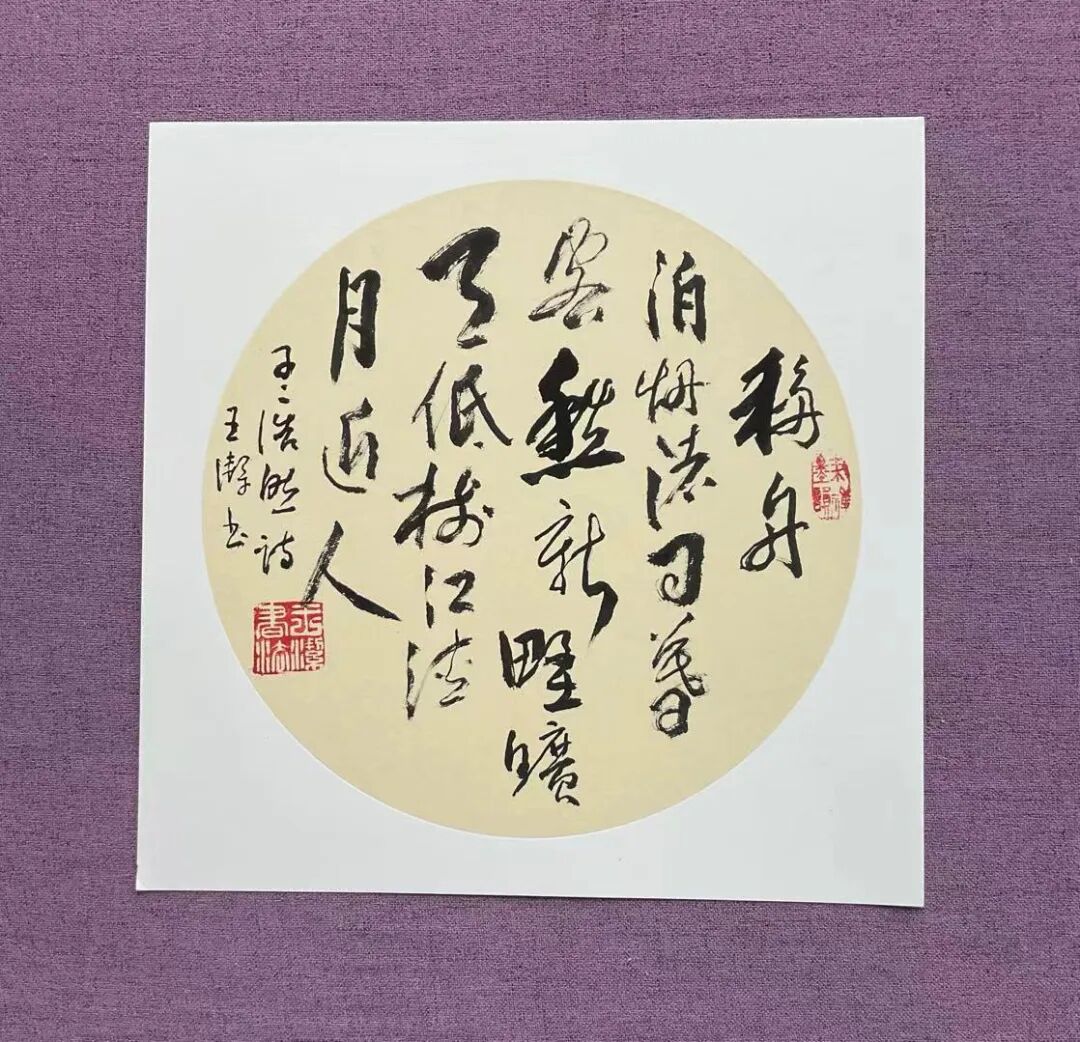 移舟
泊烟渚日暮
客愁新野曠
天低树江清
月近人
孟浩然诗
王潔书
王潔書法